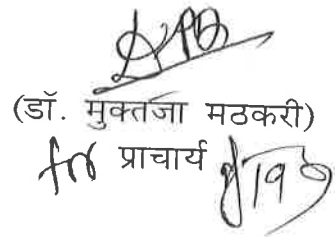 (डॉ. मुक्तजा मठकरी)
for प्राचार्य